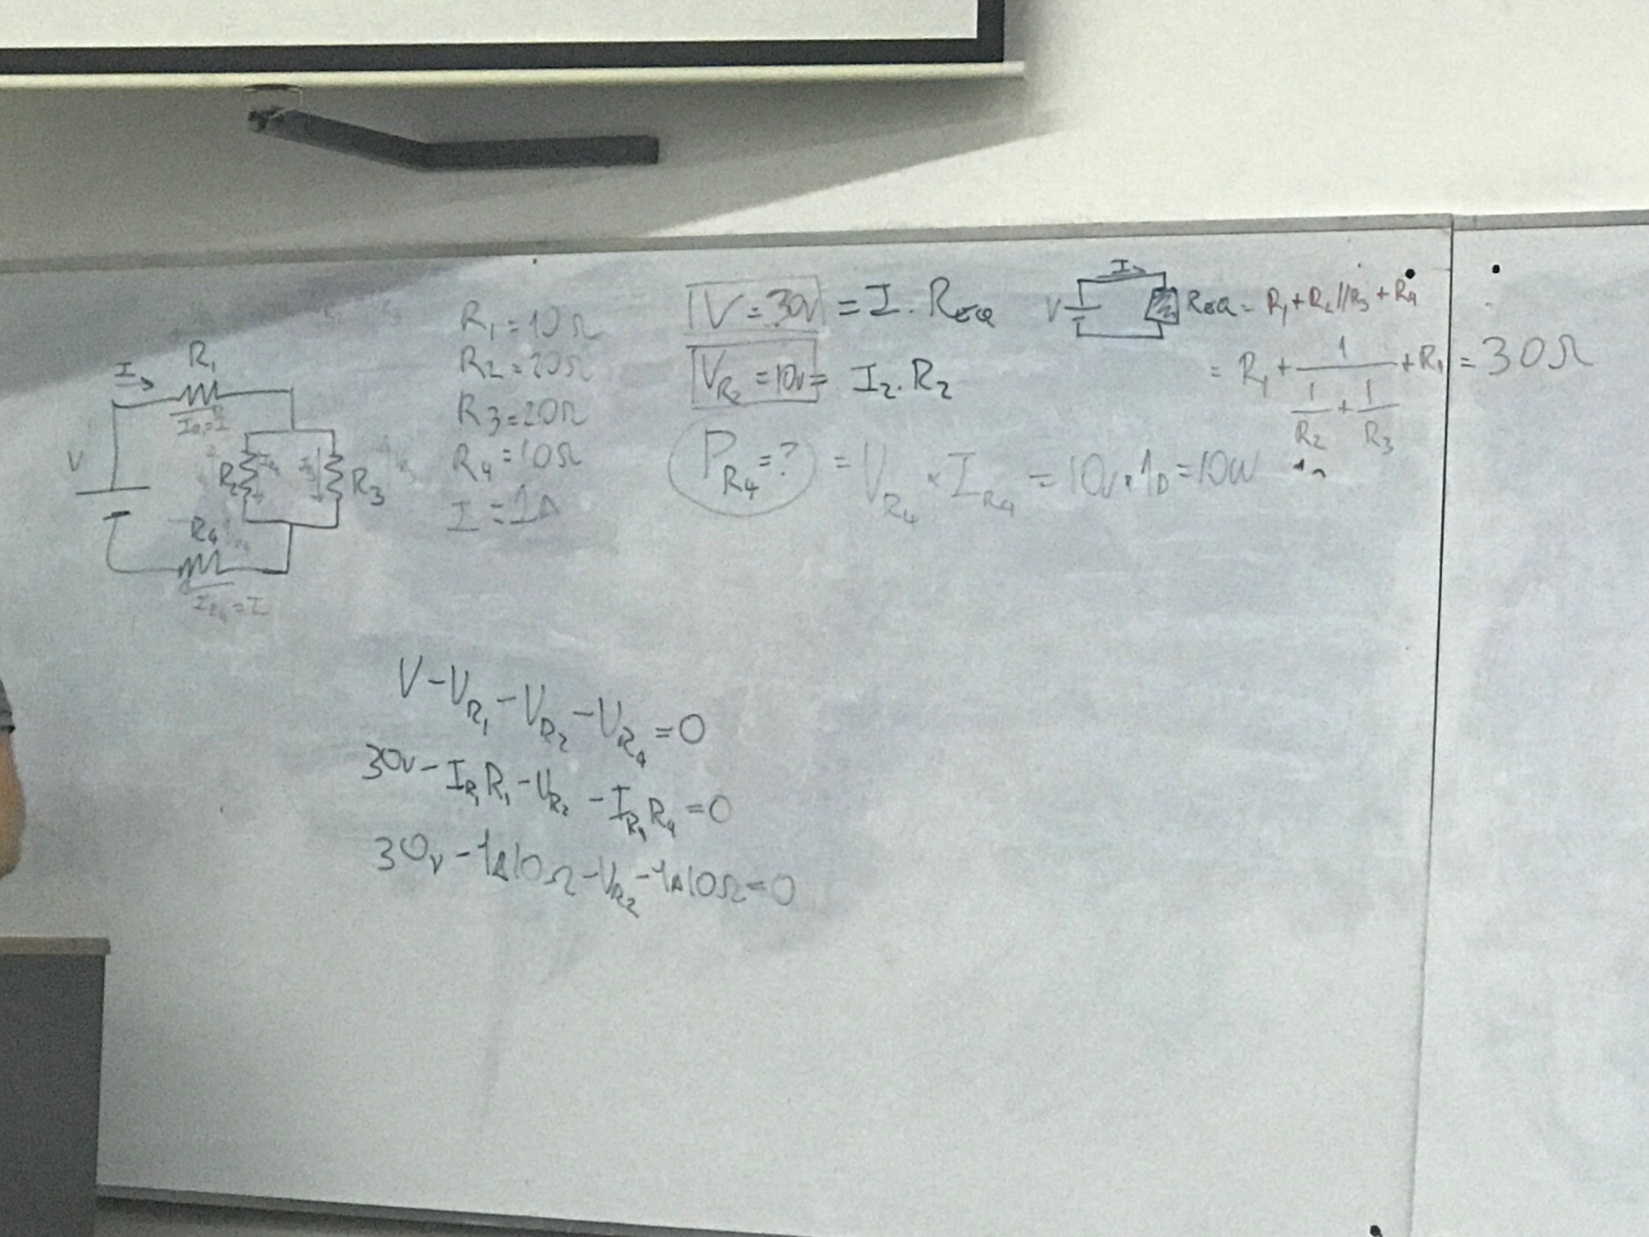 I
R₁
I_R₁=I
V
R₂
R₃
R₄
I_R₄=I
R₁=10Ω
R₂=20Ω
R₃=20Ω
R₄=10Ω
I=1A
V=30V = I.R_EQ
V_R₂=10V= I₂.R₂
P_R₄=? = V_R₄ × I_R₄ = 10V.1A=10W
I
V
R_EQ= R₁+R₂//R₃+R₄
= R₁+ 1/(1/R₂ + 1/R₃) +R₄ = 30Ω
V-V_R₁-V_R₂-V_R₄=0
30V-I_R₁R₁-V_R₂-I_R₄R₄=0
30V-1A10Ω-V_R₂-1A10Ω=0